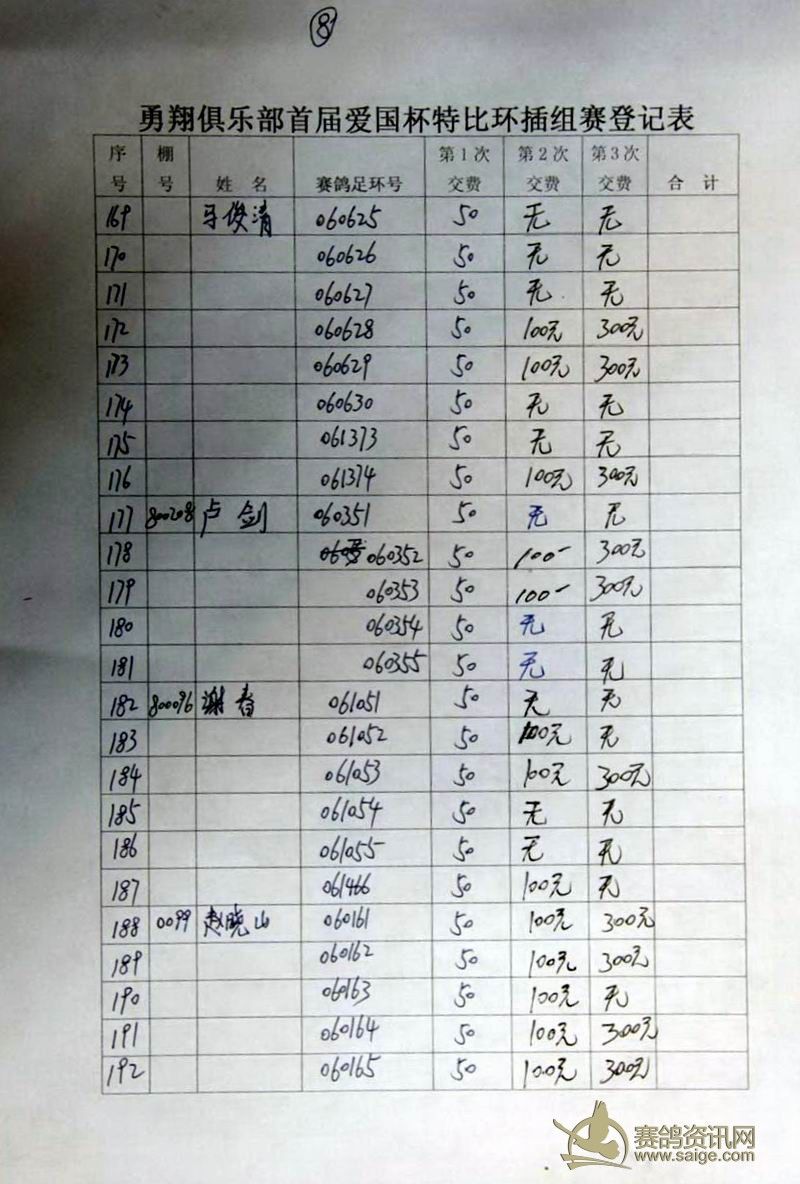 ⑧
勇翔俱乐部首届爱国杯特比环插组赛登记表
序号 棚号 姓名 赛鸽足环号 第1次交费 第2次交费 第3次交费 合计
169 马俊清 060625 50 无 无
170 060626 50 无 无
171 060627 50 无 无
172 060628 50 100元 300元
173 060629 50 100元 300元
174 060630 50 无 无
175 061373 50 无 无
176 061374 50 100元 300元
177 800208 卢剑 060351 50 无 无
178 060352 50 100- 300元
179 060353 50 100- 300元
180 060354 50 无 无
181 060355 50 无 无
182 800096 谢春 061051 50 无 无
183 061052 50 100元 无
184 061053 50 100元 300元
185 061054 50 无 无
186 061055 50 无 无
187 061466 50 100元 无
188 0099 赵晓山 060161 50 100元 300元
189 060162 50 100元 300元
190 060163 50 100元 无
191 060164 50 100元 300元
192 060165 50 100元 300元
赛鸽资讯网
www.saige.com